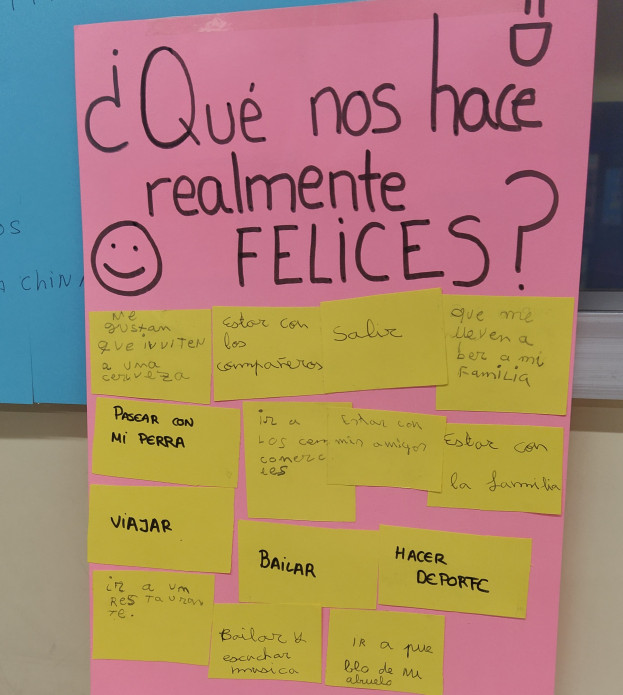 ¿Qué nos hace
realmente
FELiCES?
OS
A ChiNA
Me
gustan
que inviten
a una
cerveza
Estar con
los
compañeros
Salir
que me
lleven a
ber a mi
Familia
PASEAR CON
Mi PERRA
ir a
Los cen
comerc
les
Estar con
mis amigos
Estar con
la familia
ViAJAR
BAiLAR
HACER
DEPORTE
ir a un
Restauran
te.
Bailar y
escuchar
musica
IR a pue
blo de mi
abuelo